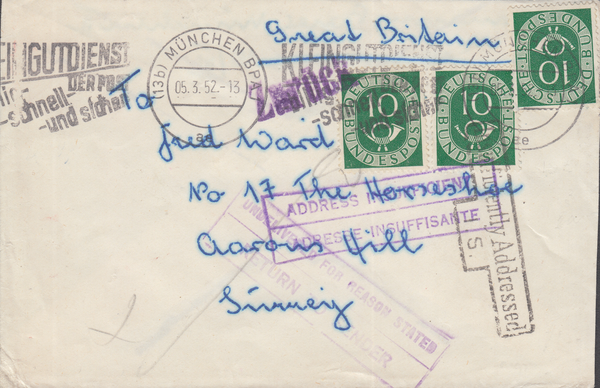 Great Britain
KLEINGUTDIENST
DER POST
-schnell-
-und sicher
(13b) MÜNCHEN BP
05.3.52.-13
KLEINGUTDIENST
Zurück
To
DEUTSCHE
10
BUNDESPOST
DEUTSCHE
10
BUNDESPOST
DEUTSCHE
10
BUNDESPOST
Fred Ward
No 17 The Horseshoe
Aarons Hill
Surrey
ADDRESS INSUFFICIENT
ADRESSE INSUFFISANTE
FOR REASON STATED
RETURN TO SENDER
Addressed
S.